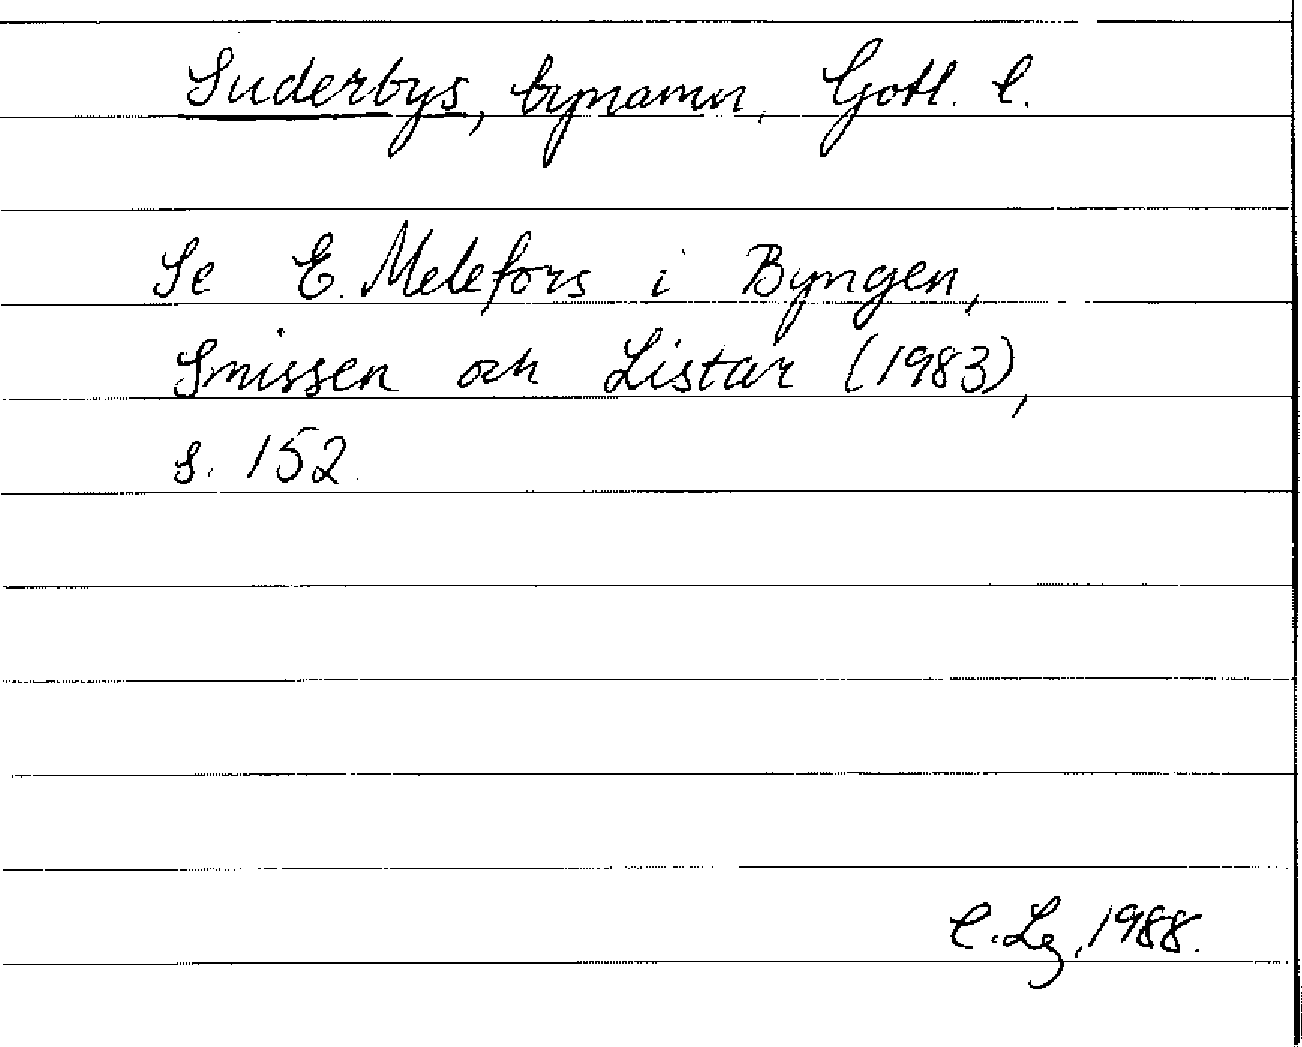 Suderbys, bynamn, Gotl. l.
Se E. Melefors i Byngen,
Smissen och Listar (1983),
s. 152.
C. Lg, 1988.